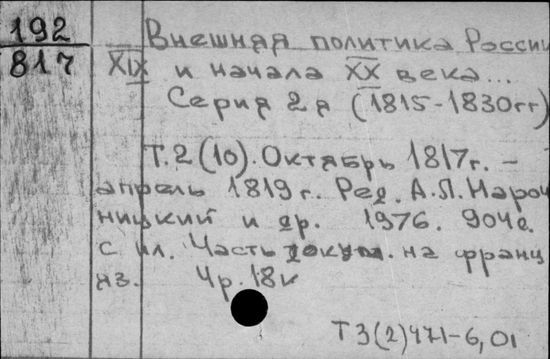 192
817
Внешная политика России
XIX и начала XX века...
Серия 2я (1815-1830гг)
Т.2(10). Октябрь 1817г. –
апрель 1819г. Ред. А.Л.Нароч
ницкий и др. 1976. 904с.
с ил. Часть докум. на франц
яз. 4р.18к
Т3(2)471-6,01